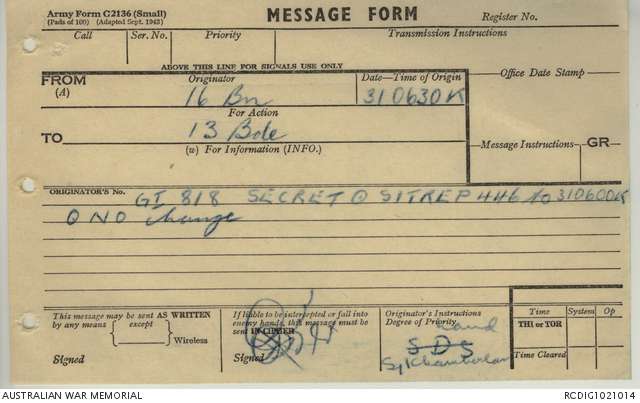 Army Form C2136 (Small)
(Pads of 100) (Adapted Sept. 1943)
MESSAGE FORM
Register No.
Call Ser. No. Priority Transmission Instructions
ABOVE THIS LINE FOR SIGNALS USE ONLY
FROM
(A)
Originator
16 Bn
Date—Time of Origin
310630K
Office Date Stamp
For Action
TO
13 Bde
(w) For Information (INFO.)
Message Instructions GR
ORIGINATOR'S No.
GI 818 SECRET @ SITREP 446 to 310600K
@ NO change
This message may be sent AS WRITTEN
by any means except
Wireless
Signed
If liable to be intercepted or fall into
enemy hands, this message must be
sent IN CIPHER
Signed
Originator's Instructions
Degree of Priority
SDS
Time System Op
THI or TOR
Time Cleared
AUSTRALIAN WAR MEMORIAL
RCDIG1021014